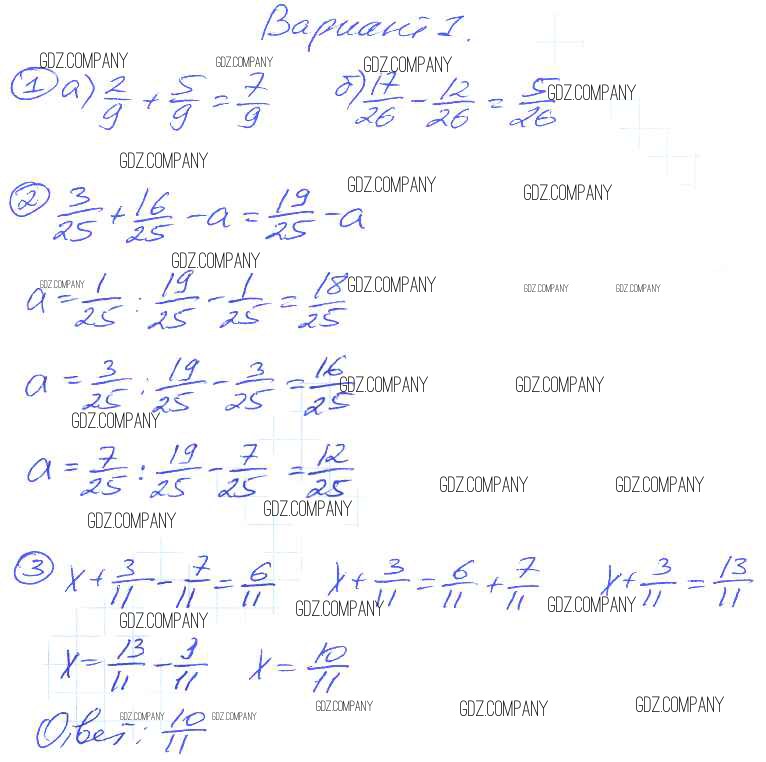 Вариант 1.
GDZ.COMPANY GDZ.COMPANY GDZ.COMPANY
① а) 2/9 + 5/9 = 7/9 б) 17/26 - 12/26 = 5/26 GDZ.COMPANY
GDZ.COMPANY GDZ.COMPANY GDZ.COMPANY
② 3/25 + 16/25 - a = 19/25 - a
GDZ.COMPANY
GDZ.COMPANY GDZ.COMPANY GDZ.COMPANY GDZ.COMPANY
a = 1/25 : 19/25 - 1/25 = 18/25
a = 3/25 : 19/25 - 3/25 = 16/25 GDZ.COMPANY GDZ.COMPANY
GDZ.COMPANY
a = 7/25 : 19/25 - 7/25 = 12/25 GDZ.COMPANY GDZ.COMPANY
GDZ.COMPANY GDZ.COMPANY
③ x + 3/11 - 7/11 = 6/11 x + 3/11 = 6/11 + 7/11 x + 3/11 = 13/11
GDZ.COMPANY GDZ.COMPANY GDZ.COMPANY
x = 13/11 - 3/11 x = 10/11
GDZ.COMPANY GDZ.COMPANY GDZ.COMPANY GDZ.COMPANY GDZ.COMPANY
Ответ: 10/11